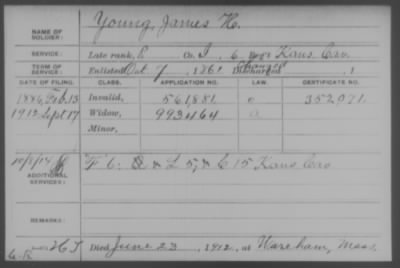 NAME OF SOLDIER: Young, James H.
SERVICE: Late rank, Co. I, 6 Kans. Cav.
TERM OF SERVICE: Enlisted Oct 7, 1861 Discharged , 1
DATE OF FILING. CLASS. APPLICATION NO. LAW. CERTIFICATE NO.
1886, Feb. 13 Invalid, 561,881 352,971.
1912, Sept 17 Widow, 993464
Minor,
10/8/14
ADDITIONAL SERVICES: L 5, & C 15 Kans Cav
REMARKS:
Died June 23, 1912, at Wareham, Mass.